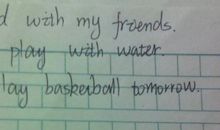 with my friends.
play with water.
lay basketball tomorrow.